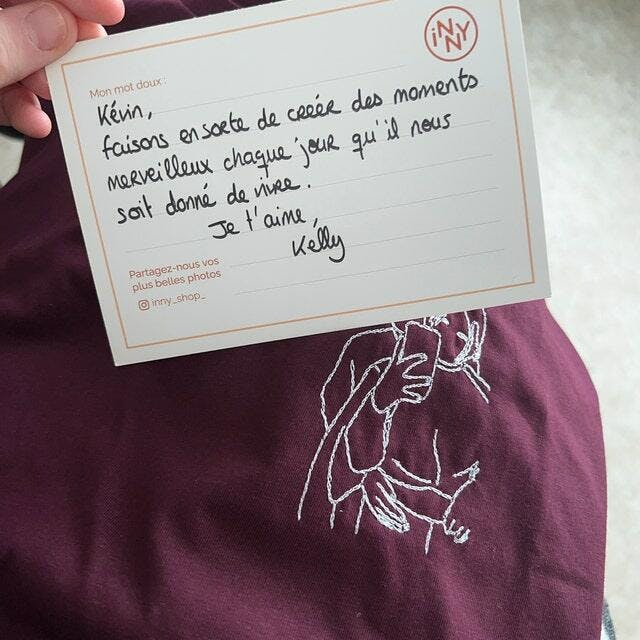 iNNY
Mon mot doux :
Kévin,
faisons en sorte de créér des moments
merveilleux chaque jour qu'il nous
soit donné de vivre.
Je t'aime,
Kelly
Partagez-nous vos
plus belles photos
inny_shop_